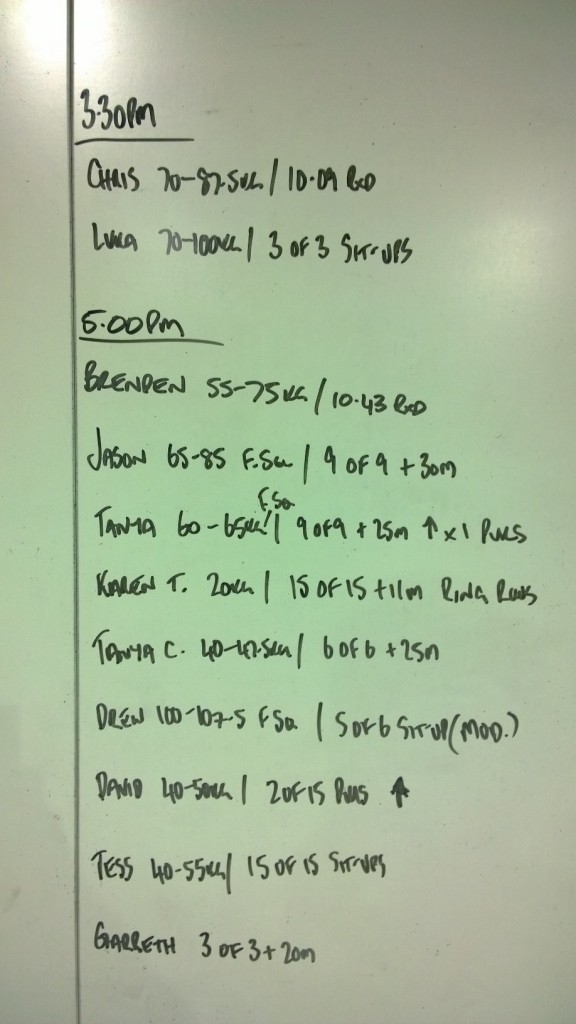 3.30PM
CHRIS 70-87.5KG / 10.09 RXD
LUKA 70-100KG / 3 OF 3 SIT-UPS
5.00PM
BRENDEN 55-75KG / 10.43 RXD
JASON 65-85 F.SQ / 9 OF 9 + 30M
F.SQ
TANYA 60-65KG / 9 OF 9 + 25M ↑ x1
KAREN T. 20KG / 15 OF 15 + 11M RING
TANYA C. 40-47.5KG / 6 OF 6 + 25M
DREW 100-107.5 F.SQ / 5 OF 6 SIT-UP (MOD.)
DAVID 40-50KG / 2 OF 15 ↑
TESS 40-55KG / 15 OF 15 SIT-UPS
GARRETH 3 OF 3 + 20M